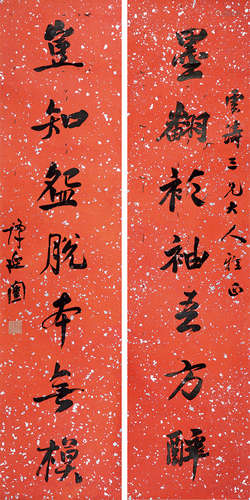 雲濤三兄大人雅正
墨翻衫袖吾方醉
豈知盌脫本無模
譚延闓